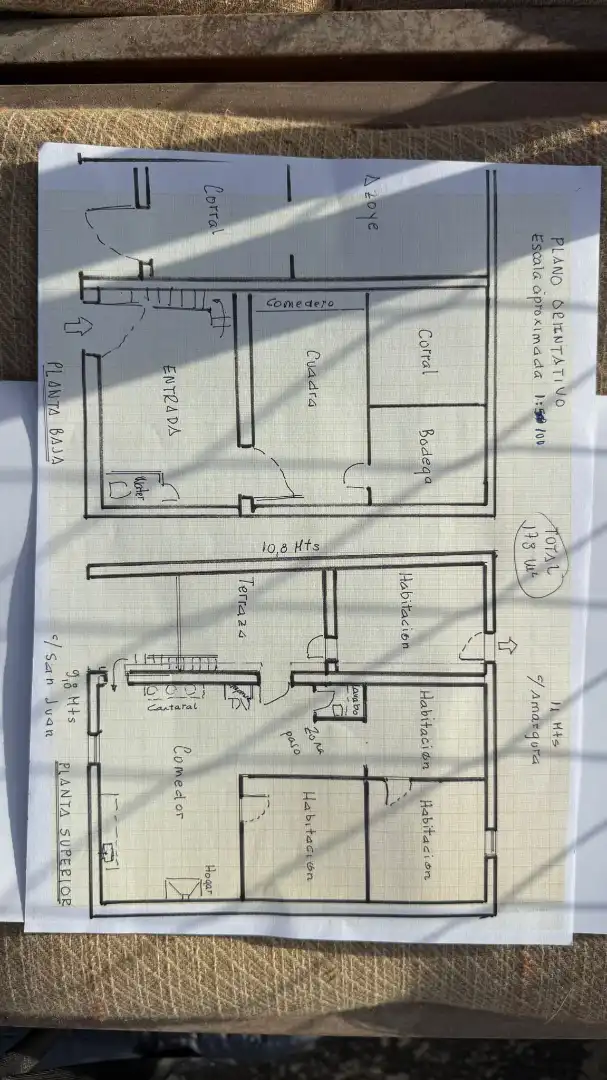 PLANO ORIENTATIVO
Escala aproximada 1:50 100
TOTAL
178 m²
11 Mts
c/ Amargura
Azoye
Corral
Corral
Bodega
Comedero
Cuadra
ENTRADA
Water
PLANTA BAJA
10,8 Mts
Habitación
Terraza
Habitación
Lavabo
Zona
paso
Habitación
Habitación
Cantaral
Comedor
Hogar
9,8 Mts
c/ San Juan
PLANTA SUPERIOR